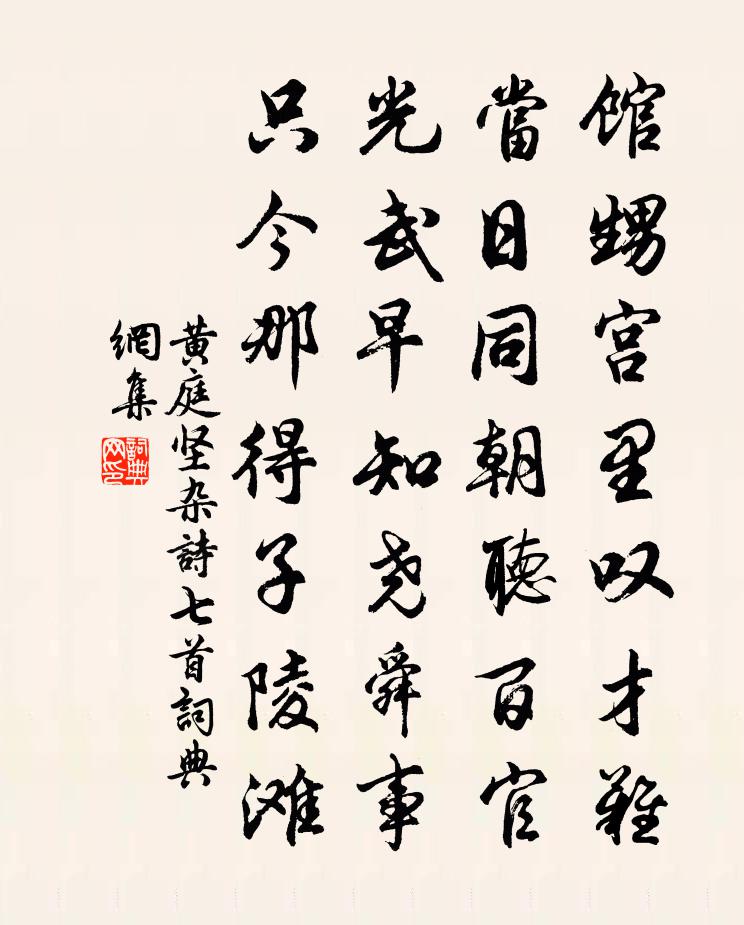 馆甥宫里叹才難
當日同朝聽百官
光武早知尧舜事
只今那得子陵滩
黄庭坚杂詩七首詞典
網集
詞典網印